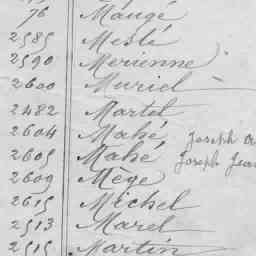 76 Maugé
2585 Meslé
2590 Merienne
2600 Muriel
2482 Martel
2604 Mahé Joseph
2605 Mahé Joseph Jean
2609 Mège
2615 Michel
2513 Marel
2515 Martin